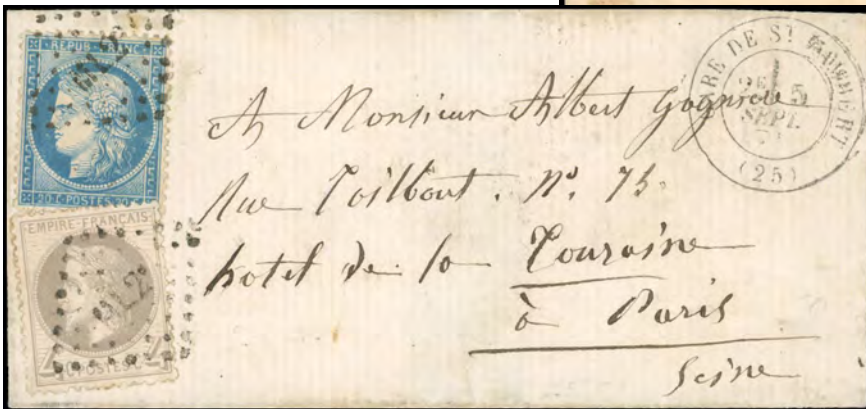 REPUB·FRANC
20·C·POSTES·20·C
EMPIRE·FRANÇAIS
POSTES
GARE DE ST
5
SEPT.
(25)
A Monsieur Albert
Rue Taitbout. N°. 75.
hotel de la Touraine
à Paris
Seine